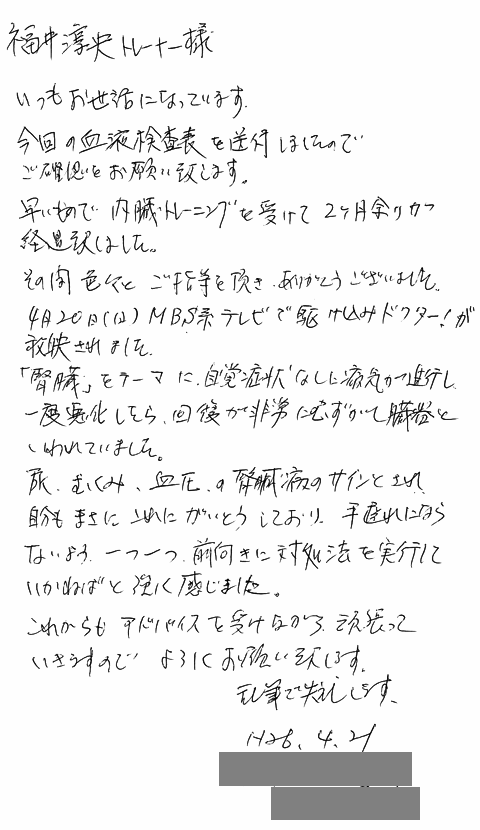 福井淳央トレーナー様
いつもお世話になっています。
今回の血液検査表を送付しましたので
ご確認をお願い致します。
早いもので 内臓トレーニングを受けて 2ヶ月余りが
経過致しました。
その間 色々と ご指導を頂き、ありがとうございました。
4月20日(日) MBS系テレビで駆け込みドクター!が
放映されました。
「腎臓」をテーマに、自覚症状なしに病気が進行し
一度悪化したら、回復が非常にむずかしい臓器と
いわれていました。
尿、むくみ、血圧、の腎臓病のサインとされ
自分も まさに これに がいとうしており 手遅れになら
ないよう、一つ一つ、前向きに対処法を実行して
いかねばと強く感じました。
これからも アドバイスを受けながら 頑張って
いきますので よろしくお願い致します。
乱筆で失礼します。
H26. 4. 21